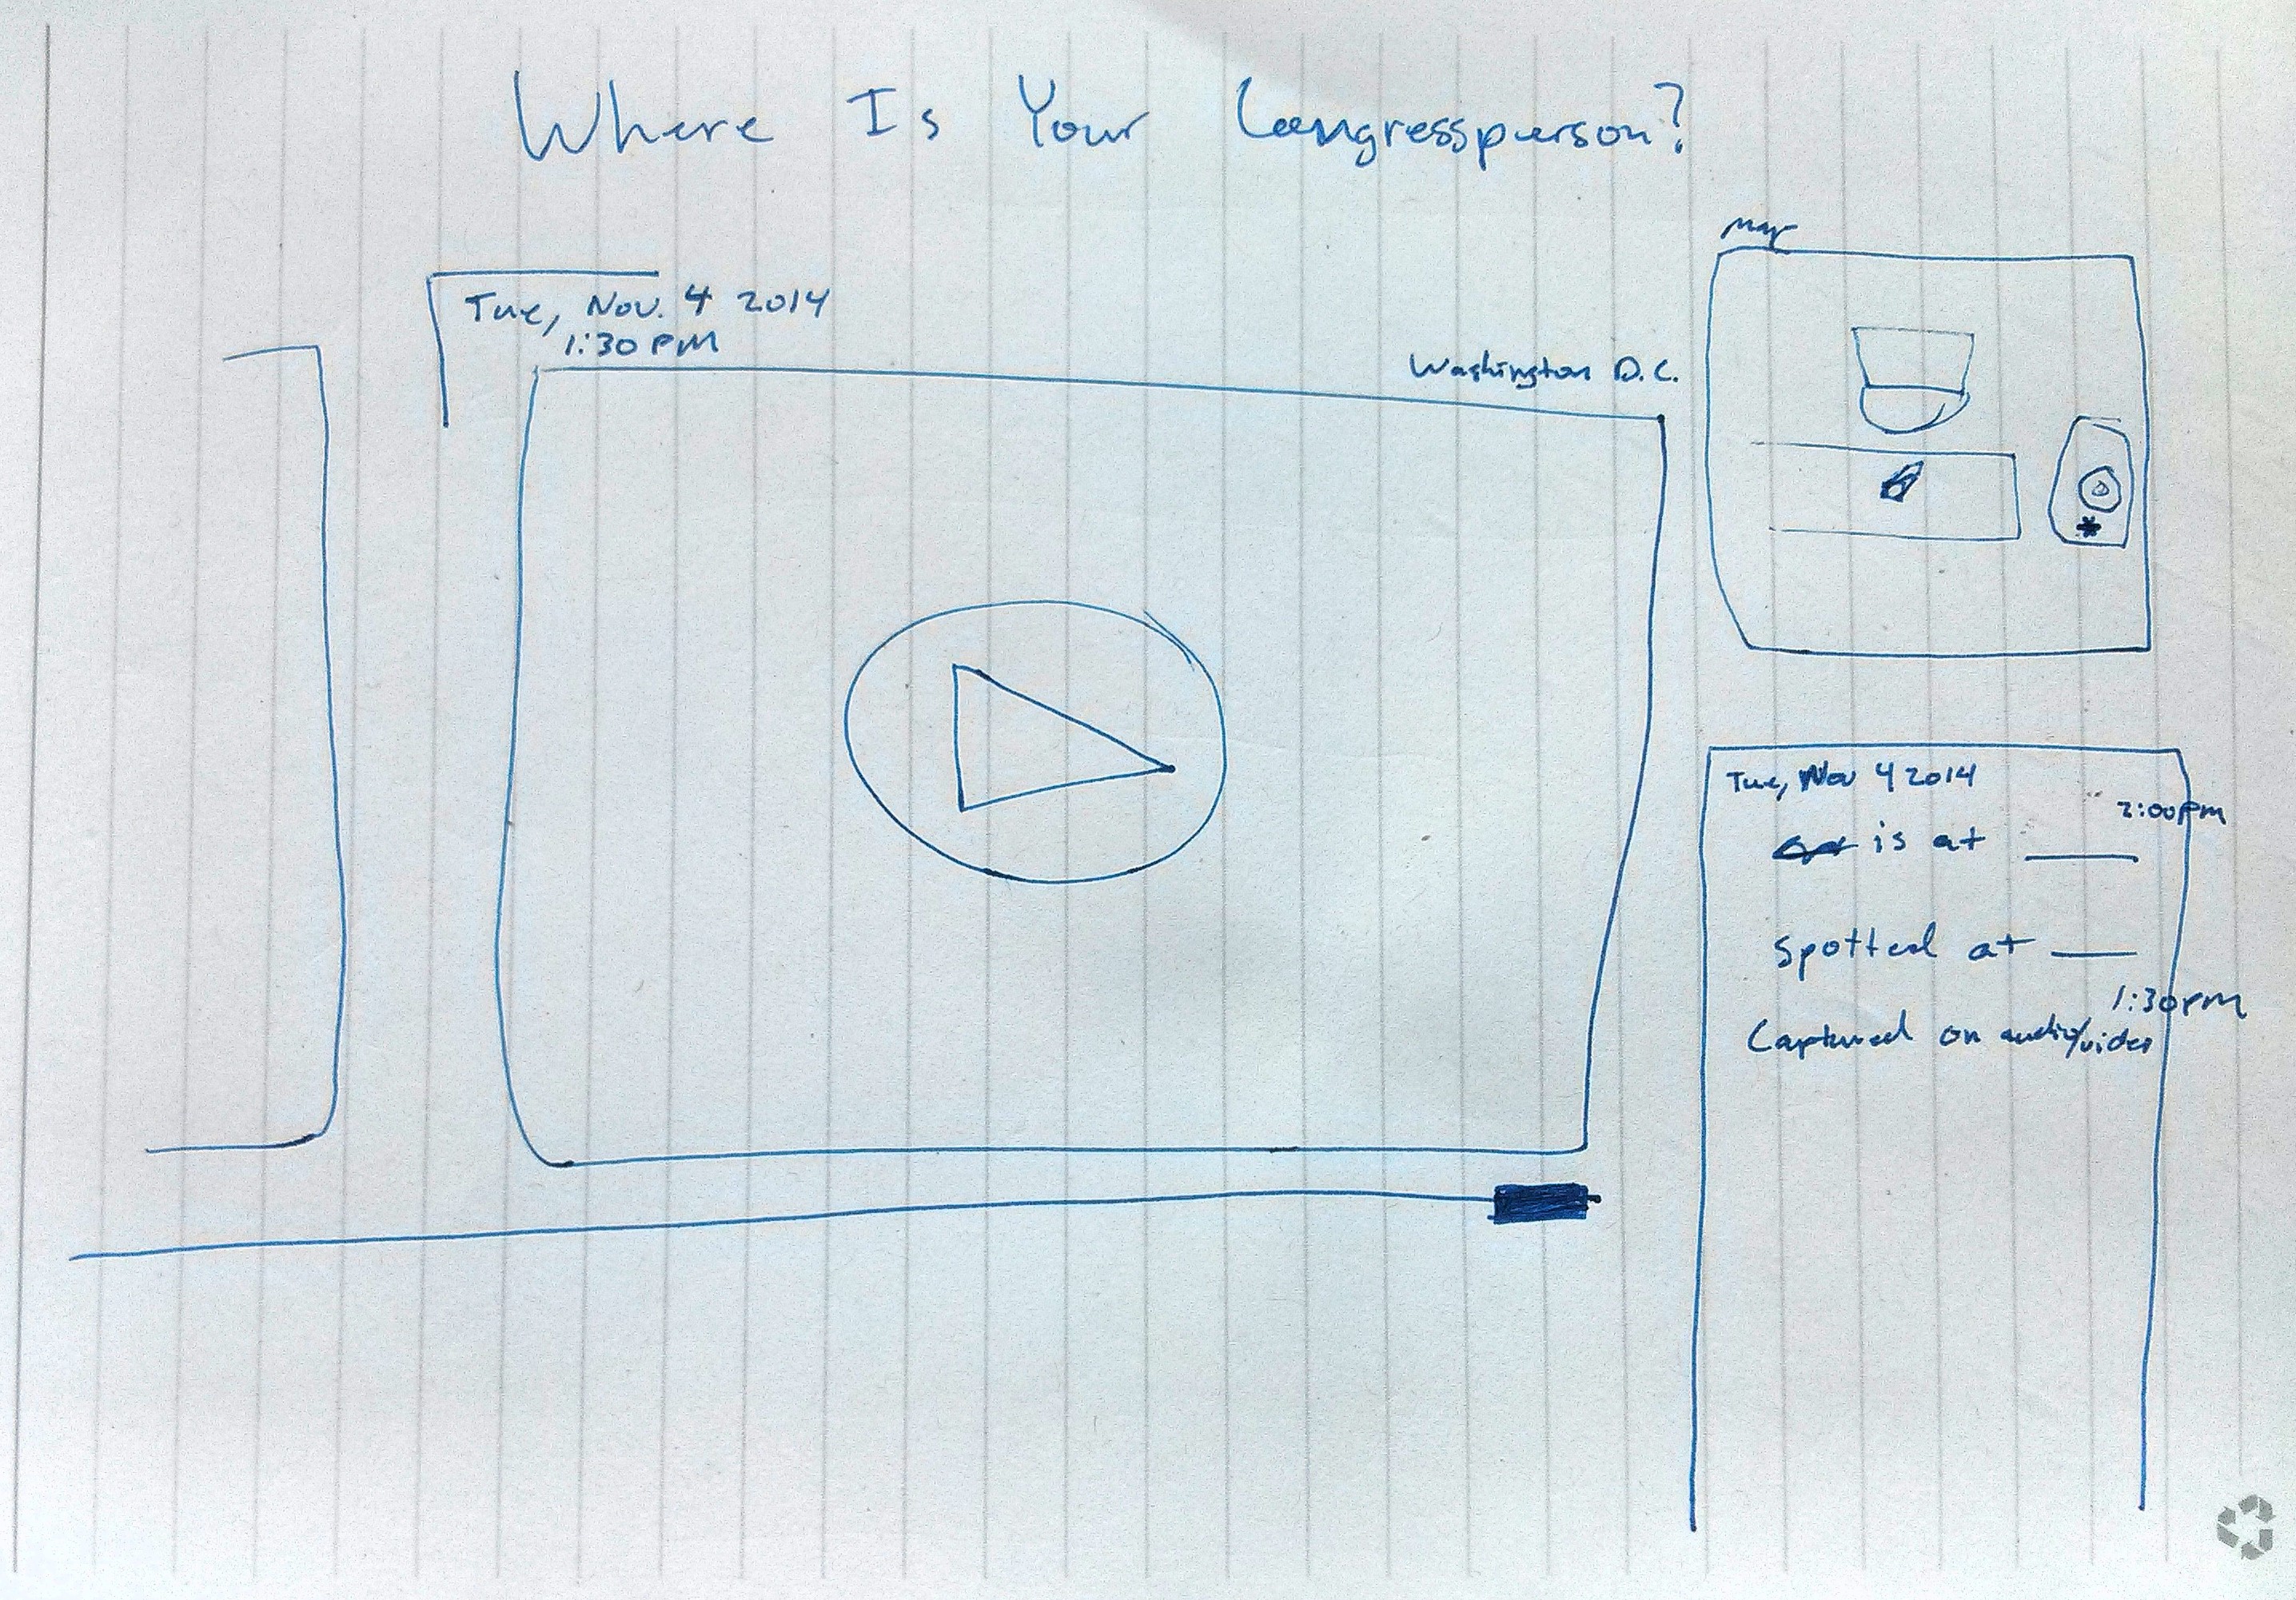 Where Is Your Congressperson?
Map
Tue, Nov. 4 2014
1:30 PM
Washington D.C.
Tue, Nov 4 2014
2:00pm
is at
spotted at
1:30pm
Captured on audio/video